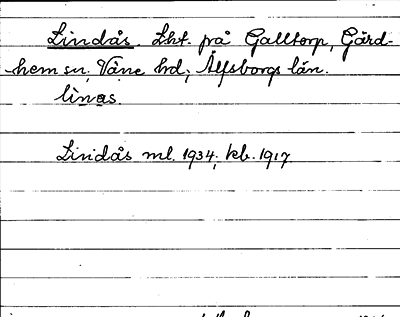 Lindås. Lht. på Galltorp, Gärd-
hem sn, Väne hd, Älfsborgs län.
lìnas.
Lindås ml. 1934, kb. 1917